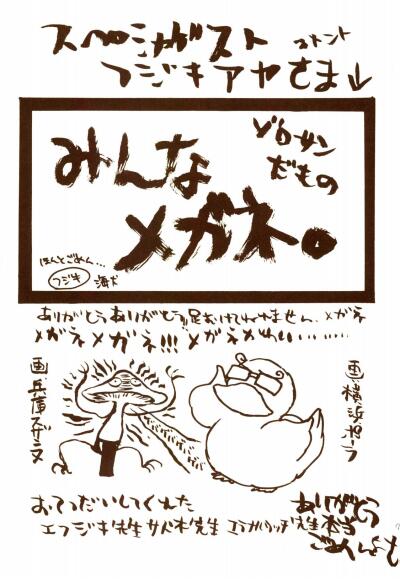 スペシャルゲスト
フジキアヤさま↓
みんな
メガネ。
ゾロサン
だもの
ほんとごめん…
フジキ
ありがとうありがとう!!足むけれねません。メガネ
メガネメガネ!!! メガネかわい……
画、兵庫スザンヌ
画、横浜ポーラ
おてつだいしてくれた
エフジキ先生サトホ先生
先生本当
ありがとう
ごめんよも